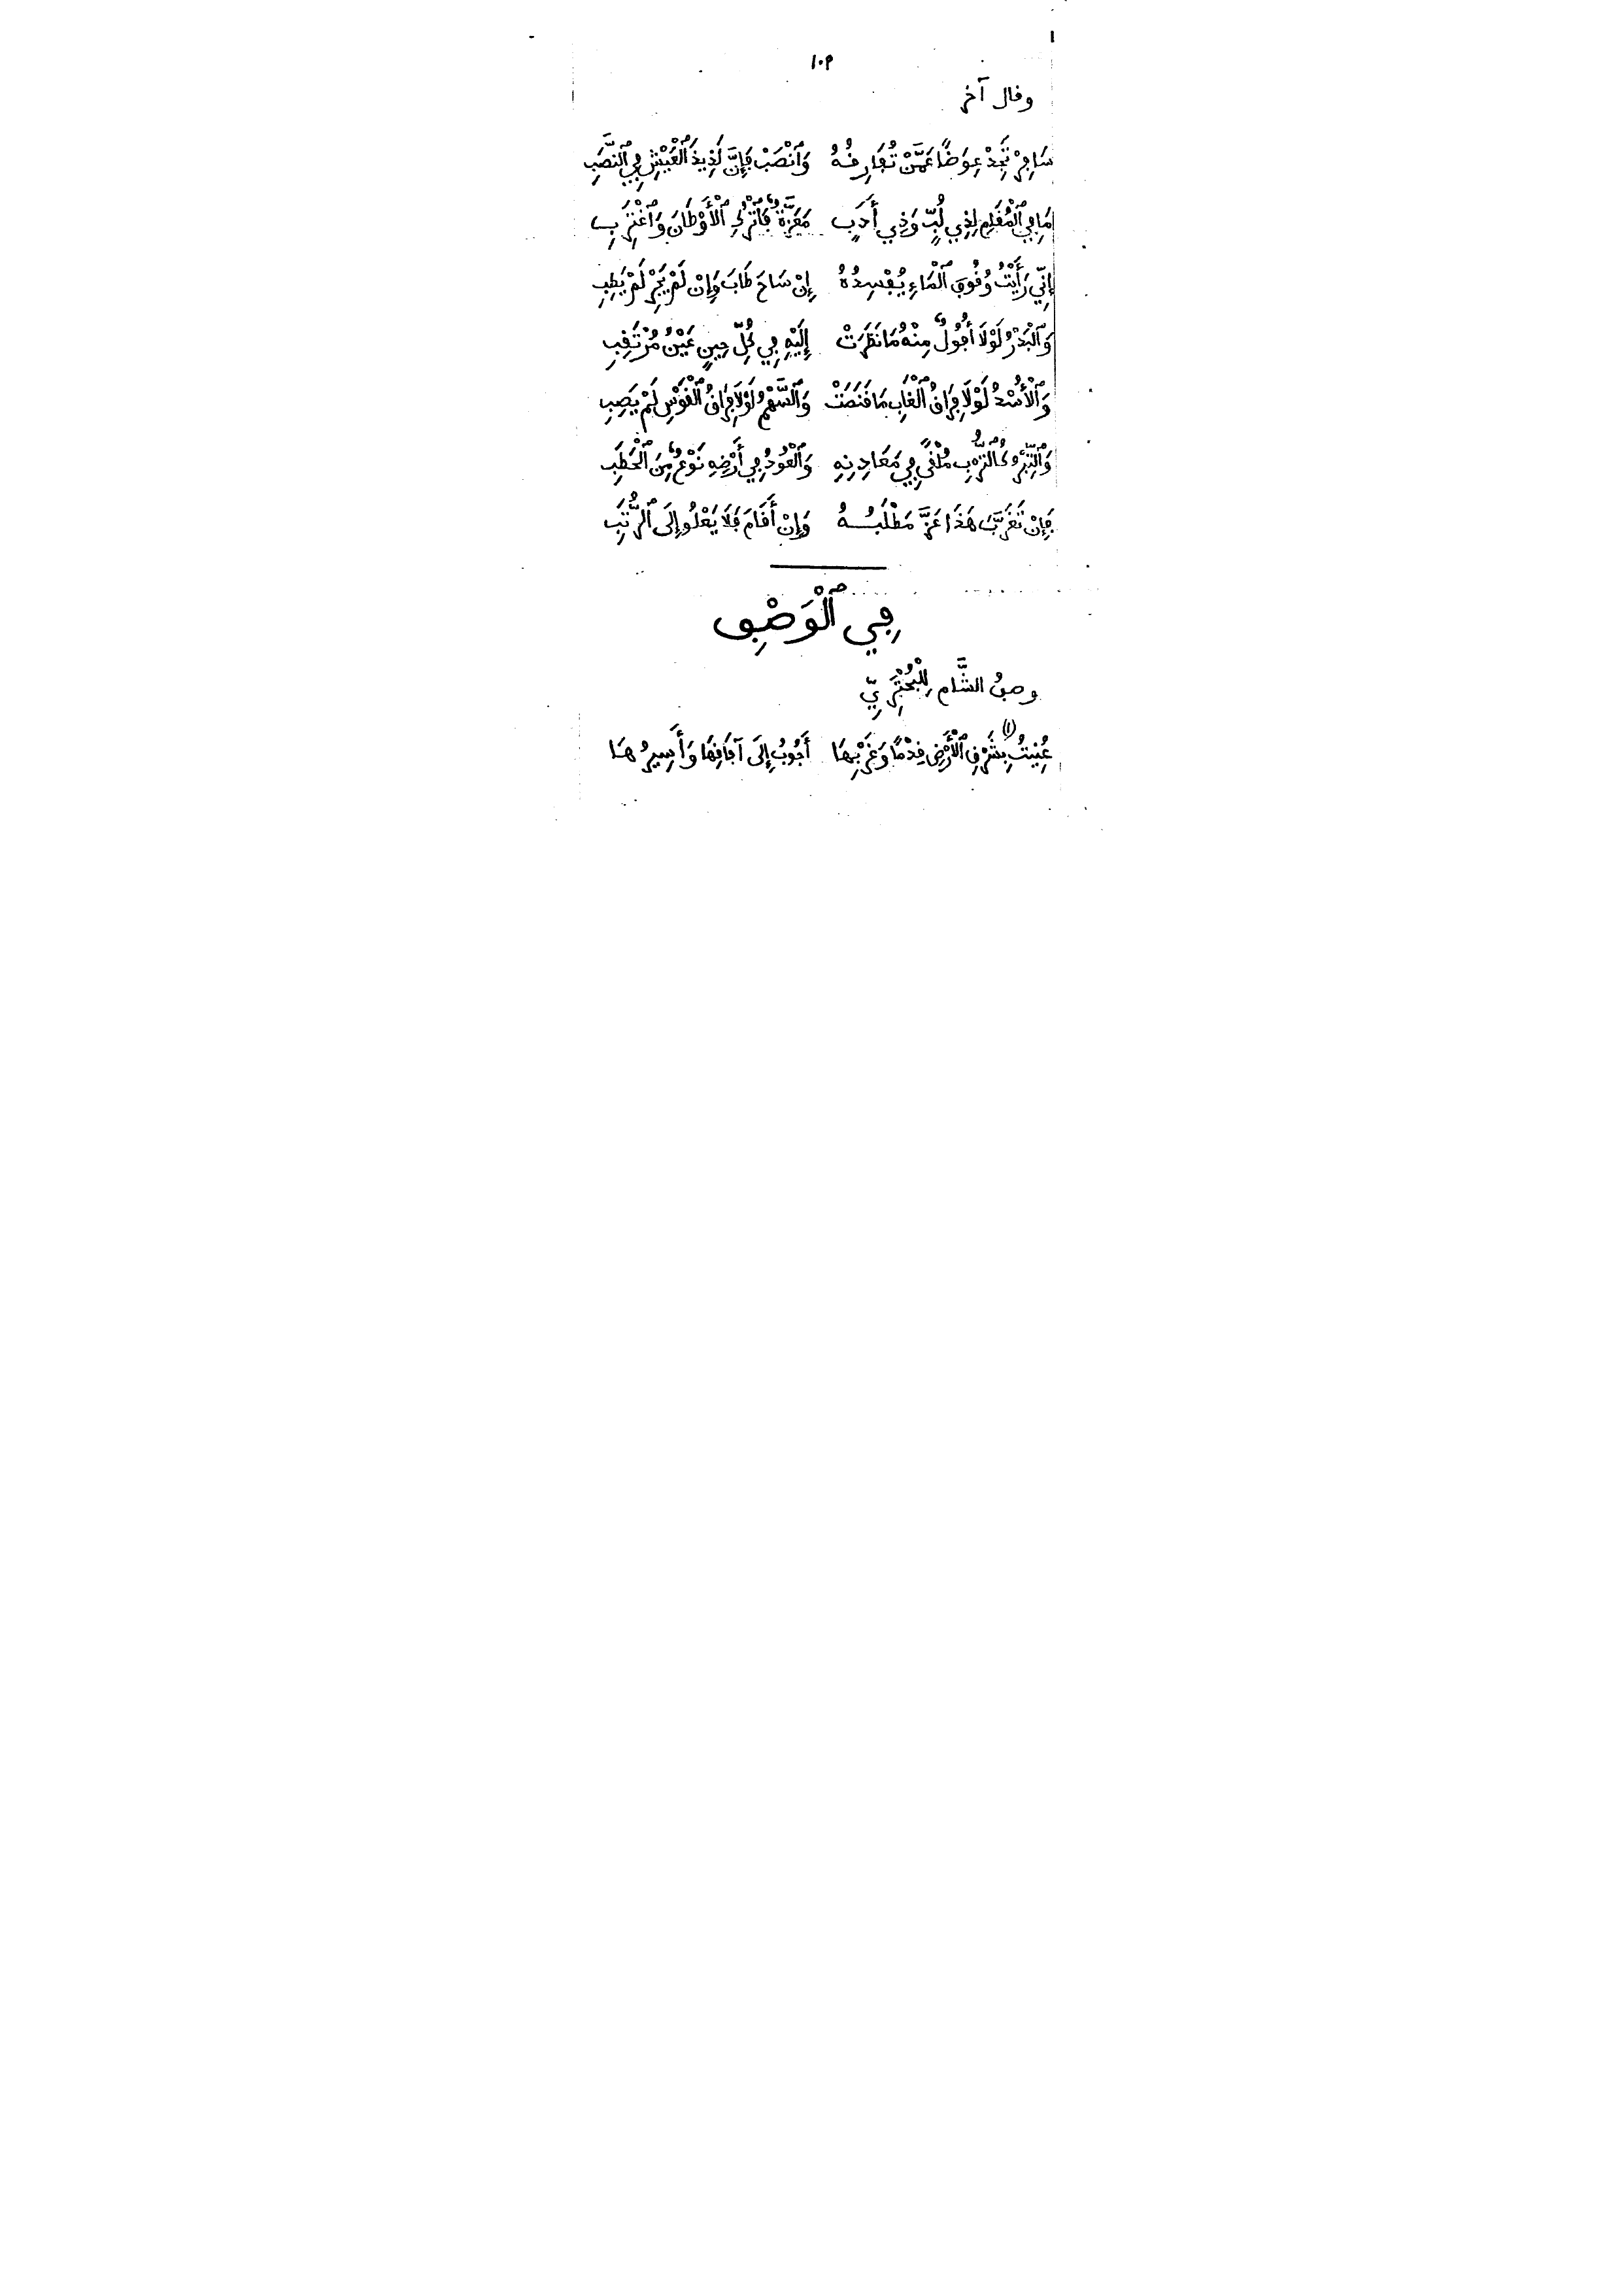 ١٠٩
وقال آخر
سَافِرْ تَجِدْ عِوَضًا عَمَّنْ تُفَارِقُهُ وَٱنْصَبْ فَإِنَّ لَذِيذَ ٱلْعَيْشِ فِي ٱلنَّصَبِ
مَا فِي ٱلْمُقَامِ لِذِي لُبٍّ وَذِي أَدَبٍ مَعَزَّةٌ فَٱتْرُكِ ٱلْأَوْطَانَ وَٱغْتَرِبِ
إِنِّي رَأَيْتُ وُقُوفَ ٱلْمَاءِ يُفْسِدُهُ إِنْ سَاحَ طَابَ وَإِنْ لَمْ يَجْرِ لَمْ يَطِبِ
وَٱلْبَدْرُ لَوْلَا أُفُولٌ مِنْهُ مَا نَظَرَتْ إِلَيْهِ فِي كُلِّ حِينٍ عَيْنُ مُرْتَقِبِ
وَٱلْأُسْدُ لَوْلَا فِرَاقُ ٱلْغَابِ مَا قَنَصَتْ وَٱلسَّهْمُ لَوْلَا فِرَاقُ ٱلْقَوْسِ لَمْ يَصِبِ
وَٱلتِّبْرُ كَٱلتُّرْبِ مُلْقًى فِي مَعَادِنِهِ وَٱلْعُودُ فِي أَرْضِهِ نَوْعٌ مِنَ ٱلْحَطَبِ
فَإِنْ تَغَرَّبَ هَذَا عَزَّ مَطْلَبُهُ وَإِنْ أَقَامَ فَلَا يَعْلُو إِلَى ٱلرُّتَبِ
فِي ٱلْوَصْفِ
وصفُ الشَّام لِلْبُحْتُرِيِّ
عُنِيتُ (١) بِشَرْقِ ٱلْأَرْضِ قِدْمًا وَغَرْبِهَا أَجُوبُ إِلَى آفَاقِهَا وَأَسِيرُهَا